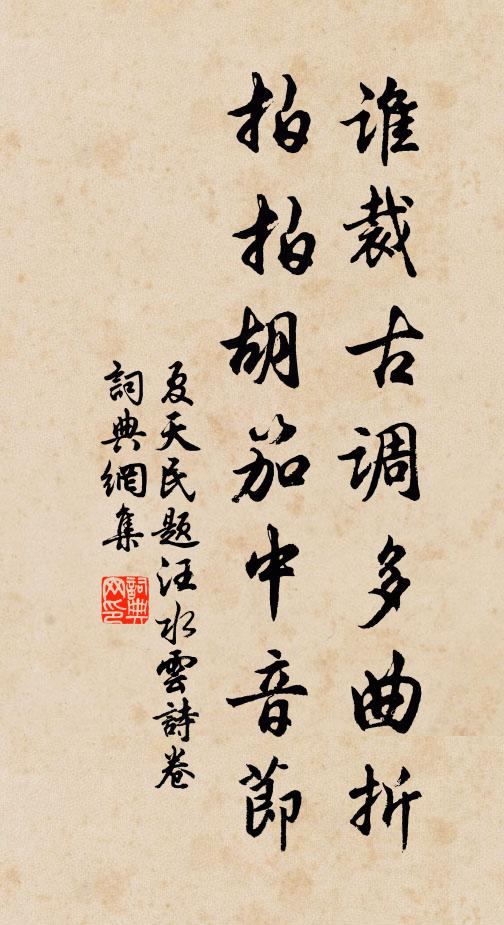 誰裁古調多曲折
拍拍胡笳中音節
夏天民題汪水雲詩卷
詞典網集
詞典網印